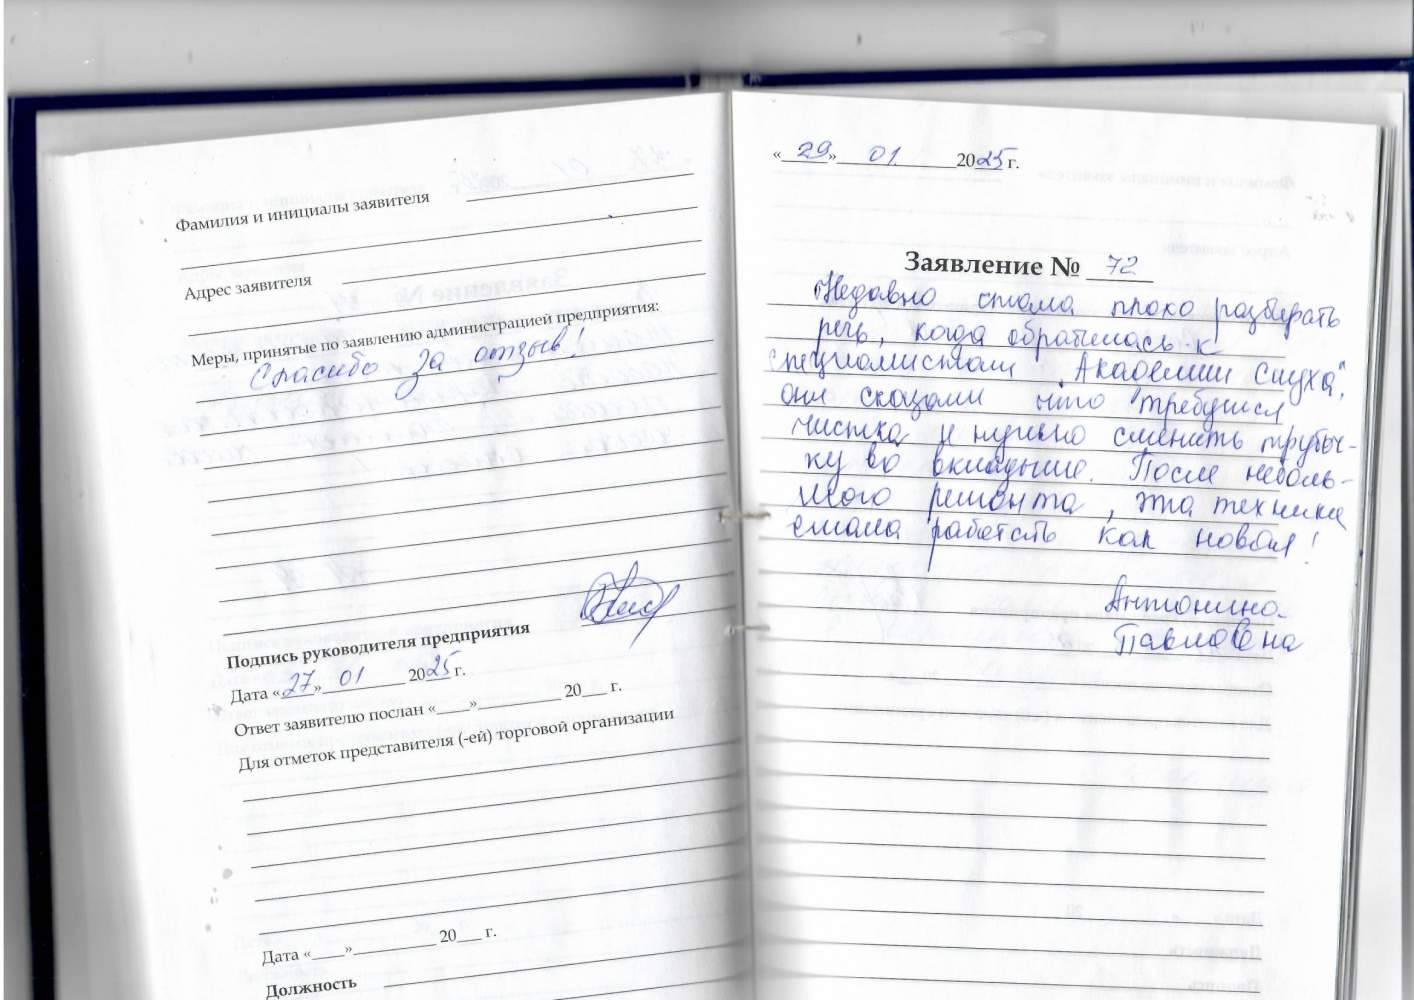 Фамилия и инициалы заявителя
Адрес заявителя
Меры, принятые по заявлению администрацией предприятия:
Спасибо за отзыв!
Подпись руководителя предприятия
Дата «27» 01 2025 г.
Ответ заявителю послан «____»__________ 20___ г.
Для отметок представителя (-ей) торговой организации
Дата «____»__________ 20___ г.
Должность
«29» 01 2025 г.
Заявление № 72
Недавно стала плохо разбирать
речь, когда обратилась к
специалистам "Академии слуха",
они сказали что требуется
чистка и нужно сменить трубоч-
ку во вкладыше. После неболь-
шого ремонта, эта техника
стала работать как новая!
Антонина
Павловна